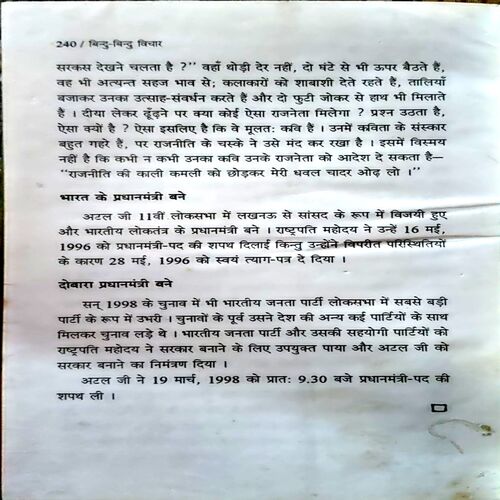 240 / बिन्दु-बिन्दु विचार
सरकस देखने चलता है ?'' वहाँ थोड़ी देर नहीं, दो घंटे से भी ऊपर बैठते हैं,
वह भी अत्यन्त सहज भाव से; कलाकारों को शाबाशी देते रहते हैं, तालियाँ
बजाकर उनका उत्साह-संवर्धन करते हैं और दो फुटी जोकर से हाथ भी मिलाते
हैं । दीया लेकर ढूँढ़ने पर क्या कोई ऐसा राजनेता मिलेगा ? प्रश्न उठता है,
ऐसा क्यों है ? ऐसा इसलिए है कि वे मूलतः कवि हैं । उनमें कविता के संस्कार
बहुत गहरे हैं, पर राजनीति के चस्के ने उसे मंद कर रखा है । इसमें विस्मय
नहीं है कि कभी न कभी उनका कवि उनके राजनेता को आदेश दे सकता है—
''राजनीति की काली कमली को छोड़कर मेरी धवल चादर ओढ़ लो ।''
भारत के प्रधानमंत्री बने
अटल जी 11वीं लोकसभा में लखनऊ से सांसद के रूप में विजयी हुए
और भारतीय लोकतंत्र के प्रधानमंत्री बने । राष्ट्रपति महोदय ने उन्हें 16 मई,
1996 को प्रधानमंत्री-पद की शपथ दिलाई किन्तु उन्होंने विपरीत परिस्थितियों
के कारण 28 मई, 1996 को स्वयं त्याग-पत्र दे दिया ।
दोबारा प्रधानमंत्री बने
सन् 1998 के चुनाव में भी भारतीय जनता पार्टी लोकसभा में सबसे बड़ी
पार्टी के रूप में उभरी । चुनावों के पूर्व उसने देश की अन्य कई पार्टियों के साथ
मिलकर चुनाव लड़े थे । भारतीय जनता पार्टी और उसकी सहयोगी पार्टियों को
राष्ट्रपति महोदय ने सरकार बनाने के लिए उपयुक्त पाया और अटल जी को
सरकार बनाने का निमंत्रण दिया ।
अटल जी ने 19 मार्च, 1998 को प्रातः 9.30 बजे प्रधानमंत्री-पद की
शपथ ली ।